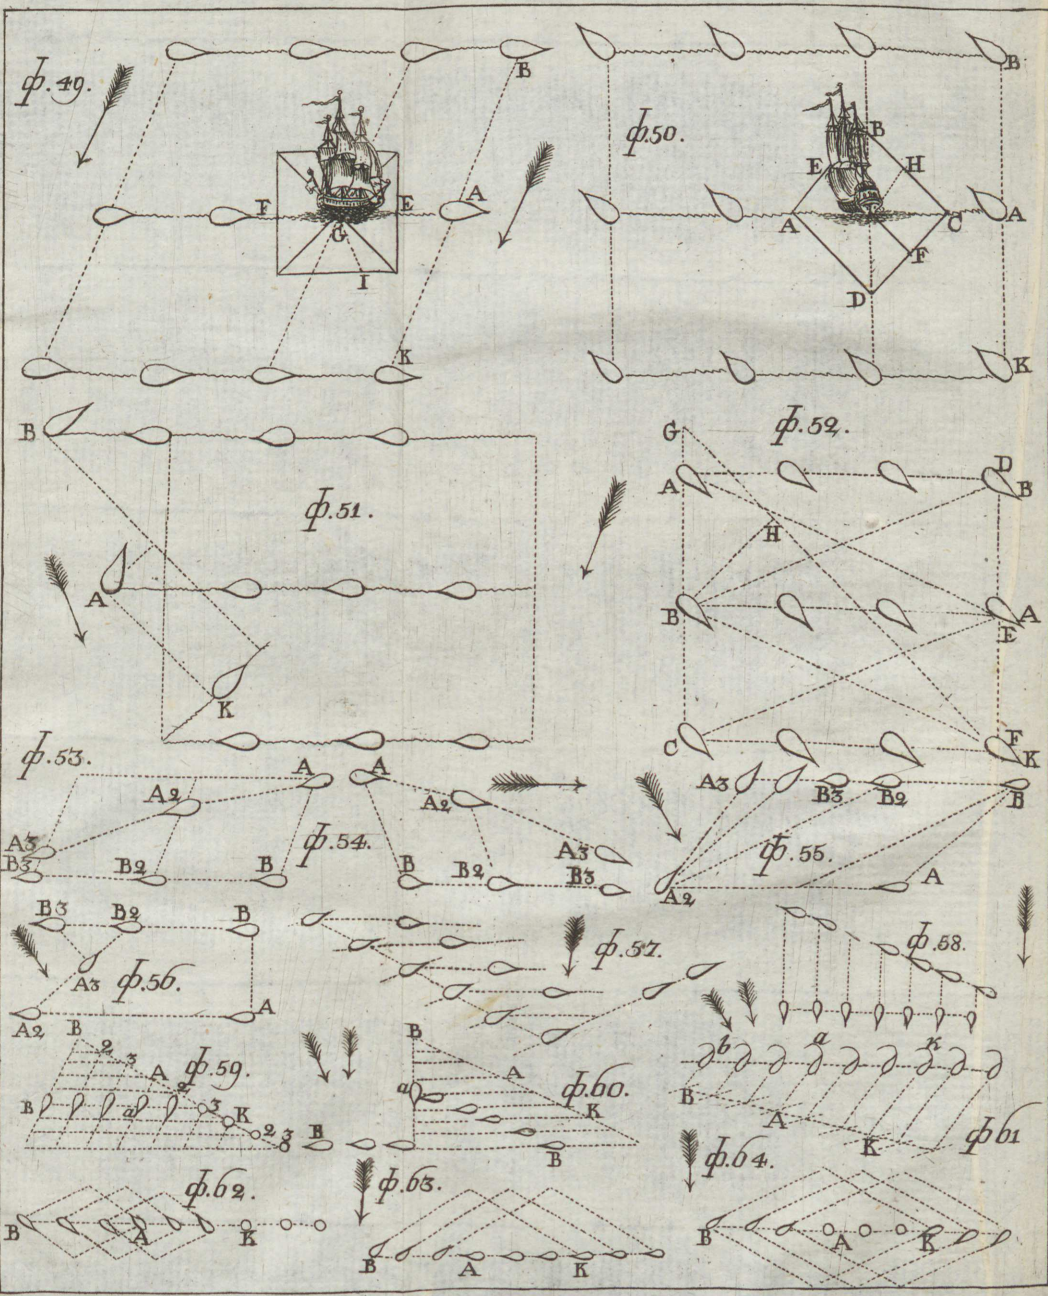 ф.49.
B
F
E
A
G
I
K
ф.50.
B
B
E
H
A
C
A
F
D
K
B
ф.51.
A
K
G
ф.52.
A
D
B
H
B
A
E
C
F
K
ф.53.
A
A2
A3
B3
B2
B
ф.54.
A
A2
A3
B
B2
B3
A3
B3
B2
B
ф.55.
A2
A
B3
B2
B
A3
ф.56.
A2
A
ф.57.
ф.58.
B
2
3
A
ф.59.
2
B
a
3
K
2
3
B
a
A
ф.60.
K
B
B
b
a
к
B
A
K
ф61
ф.62.
B
A
K
ф.63.
B
A
K
ф.64.
B
A
K